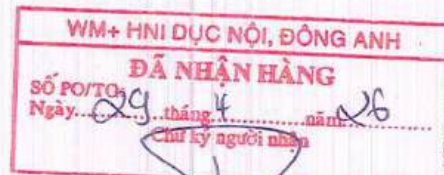 WM+ HNI DỤC NỘI, ĐÔNG ANH
ĐÃ NHẬN HÀNG
SỐ PO/TO:
Ngày 29 tháng 4 năm 26
Chữ ký người nhận